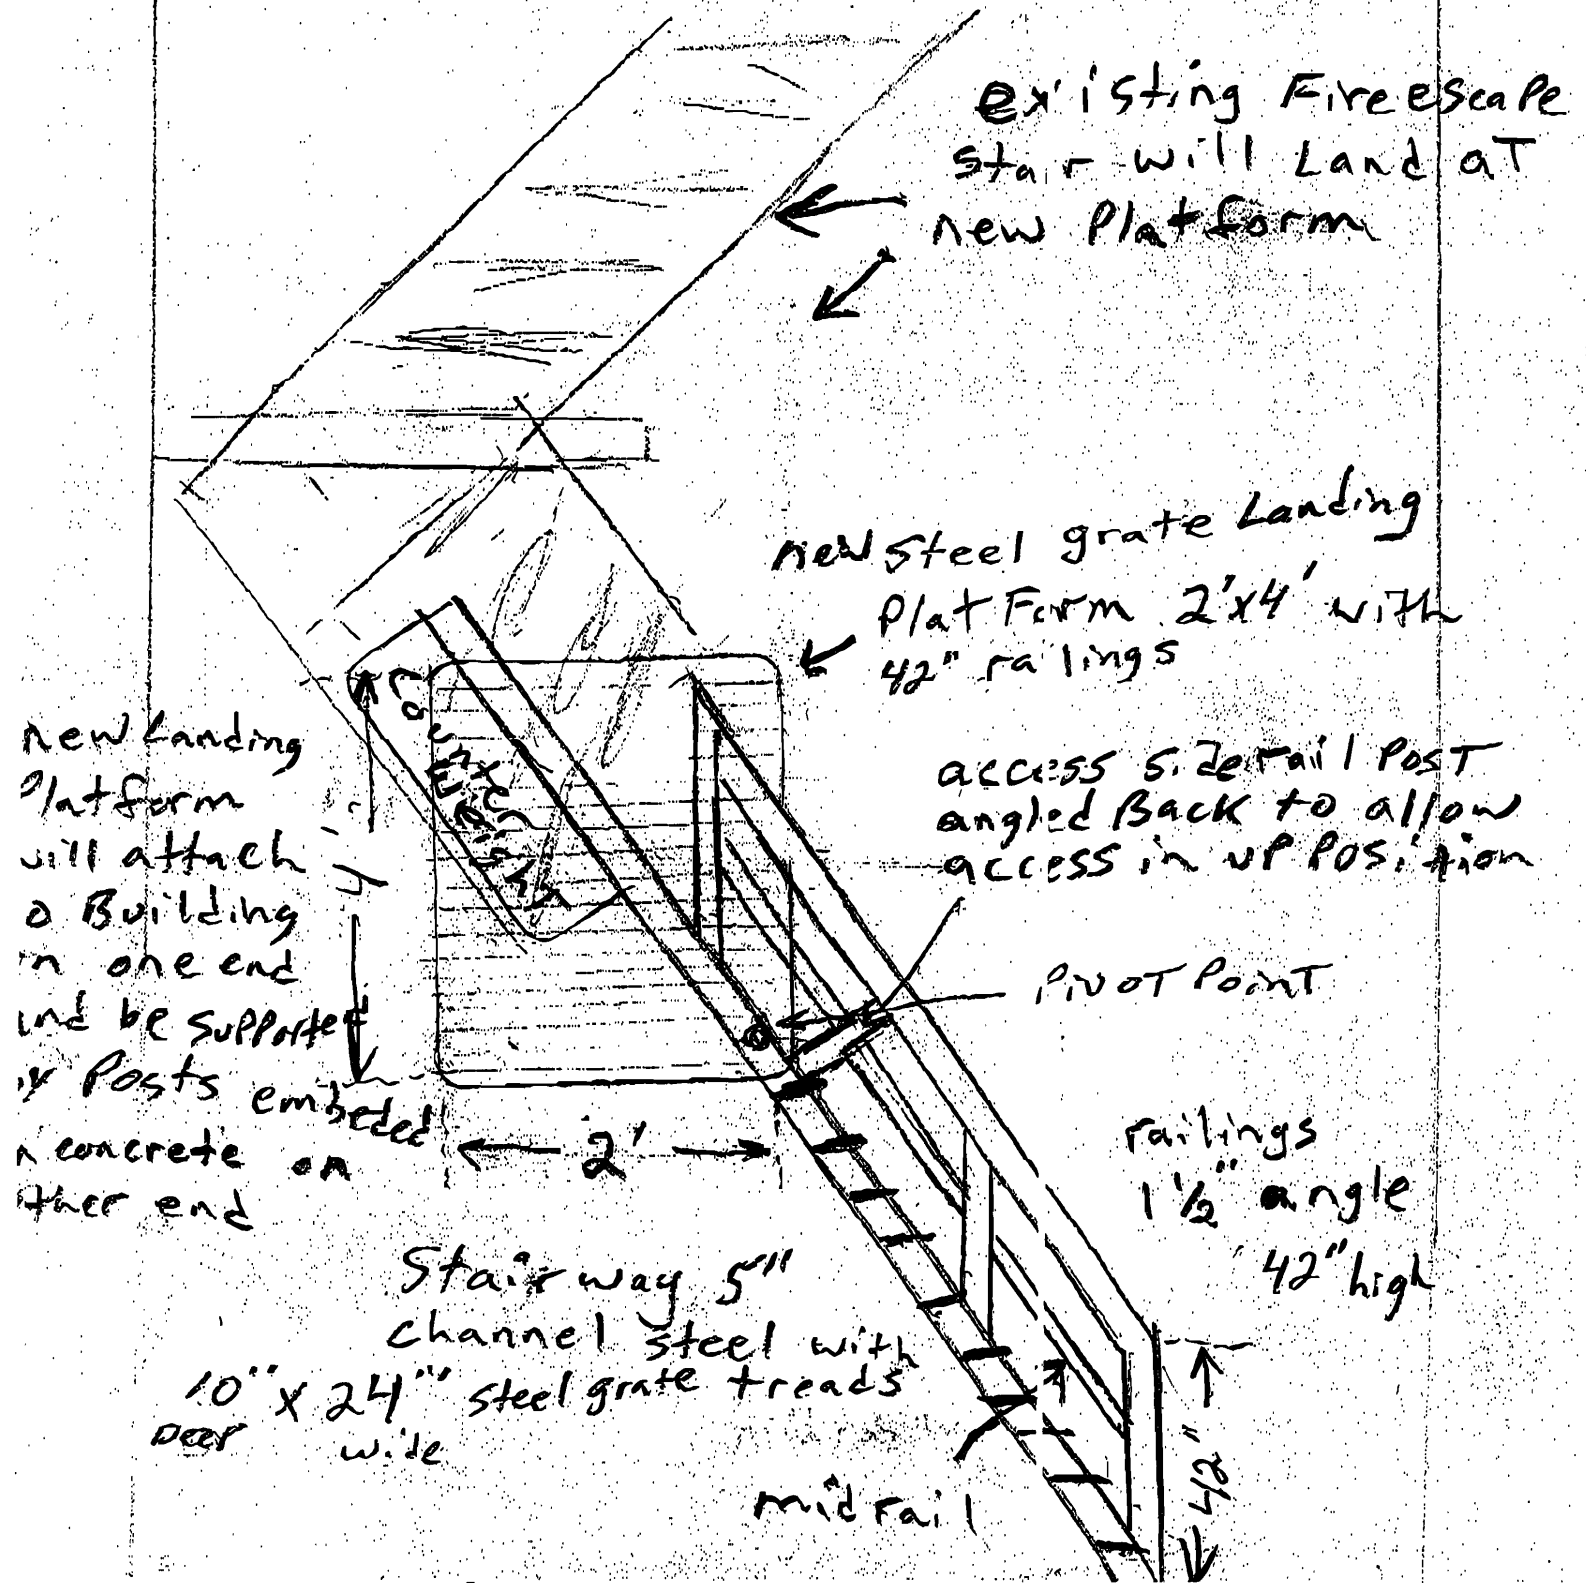 existing Fireescape
stair will Land aT
new Platform
new steel grate Landing
PlatForm 2'x4' with
42" railings
counter
weight
new Landing
Platform
will attach
o Building
n one end
and be supported
by Posts embeded
n concrete on
other end
4'
access siderail Post
angled Back to allow
access in uP Position
PivoT Point
2'
railings
1 1/2" angle
42" high
Stairway 5"
channel steel with
10" x 24" steel grate treads
Deep wide
midrail
42"